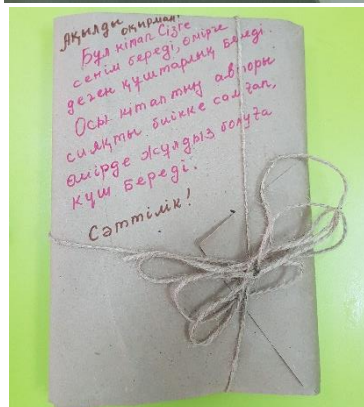 Ақылды оқырман!
Бұл кітап Сізге
сенім береді, өмірге
деген құштарлық береді.
Осы кітаптың авторы
сияқты биікке самғап,
өмірде жұлдыз болуға
күш береді.
Сәттілік!